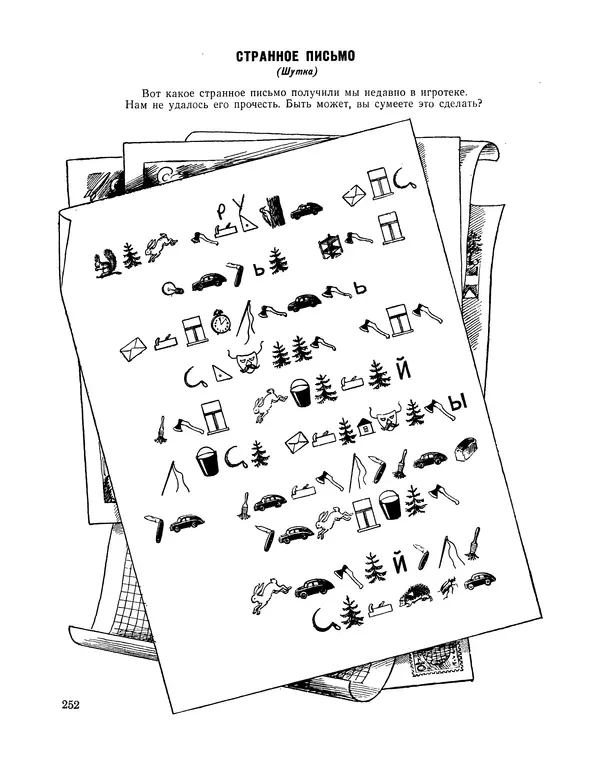 СТРАННОЕ ПИСЬМО
(Шутка)
Вот какое странное письмо получили мы недавно в игротеке.
Нам не удалось его прочесть. Быть может, вы сумеете это сделать?
Р У
Ь
Ь
Й
Ы
Й
252